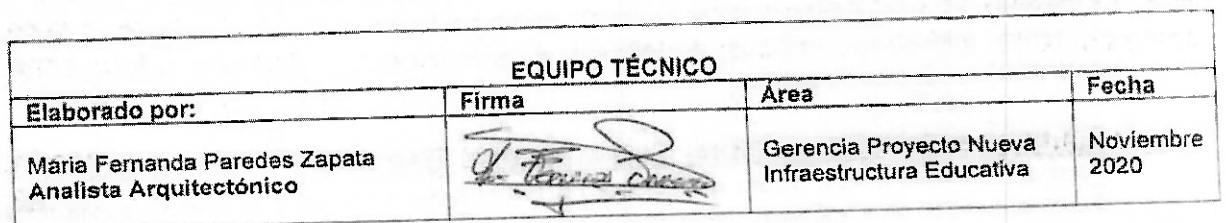 EQUIPO TÉCNICO
Elaborado por:
Firma
Área
Fecha
Maria Fernanda Paredes Zapata
Analista Arquitectónico
Gerencia Proyecto Nueva
Infraestructura Educativa
Noviembre
2020